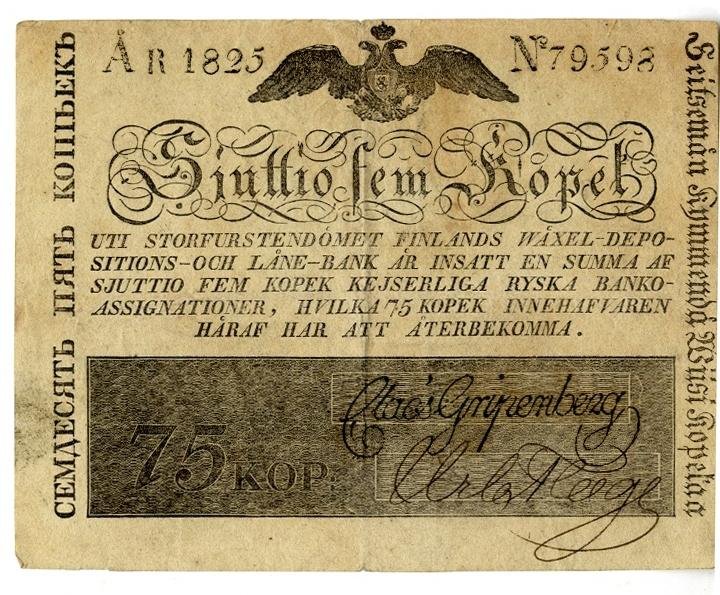 ÅR 1825
No 79598
Sjuttio fem Kopek
UTI STORFURSTENDÖMET FINLANDS WÄXEL-DEPO-
SITIONS-OCH LÅNE-BANK ÄR INSATT EN SUMMA AF
SJUTTIO FEM KOPEK KEJSERLIGA RYSKA BANKO-
ASSIGNATIONER, HVILKA 75 KOPEK INNEHAFVAREN
HÄRAF HAR ATT ÅTERBEKOMMA.
75 KOP:
Claes Gripenberg
СЕМДЕСЯТЬ ПЯТЬ КОПѢЕКЪ
Seitsemän Kymmendä Wiisi Kopekaa